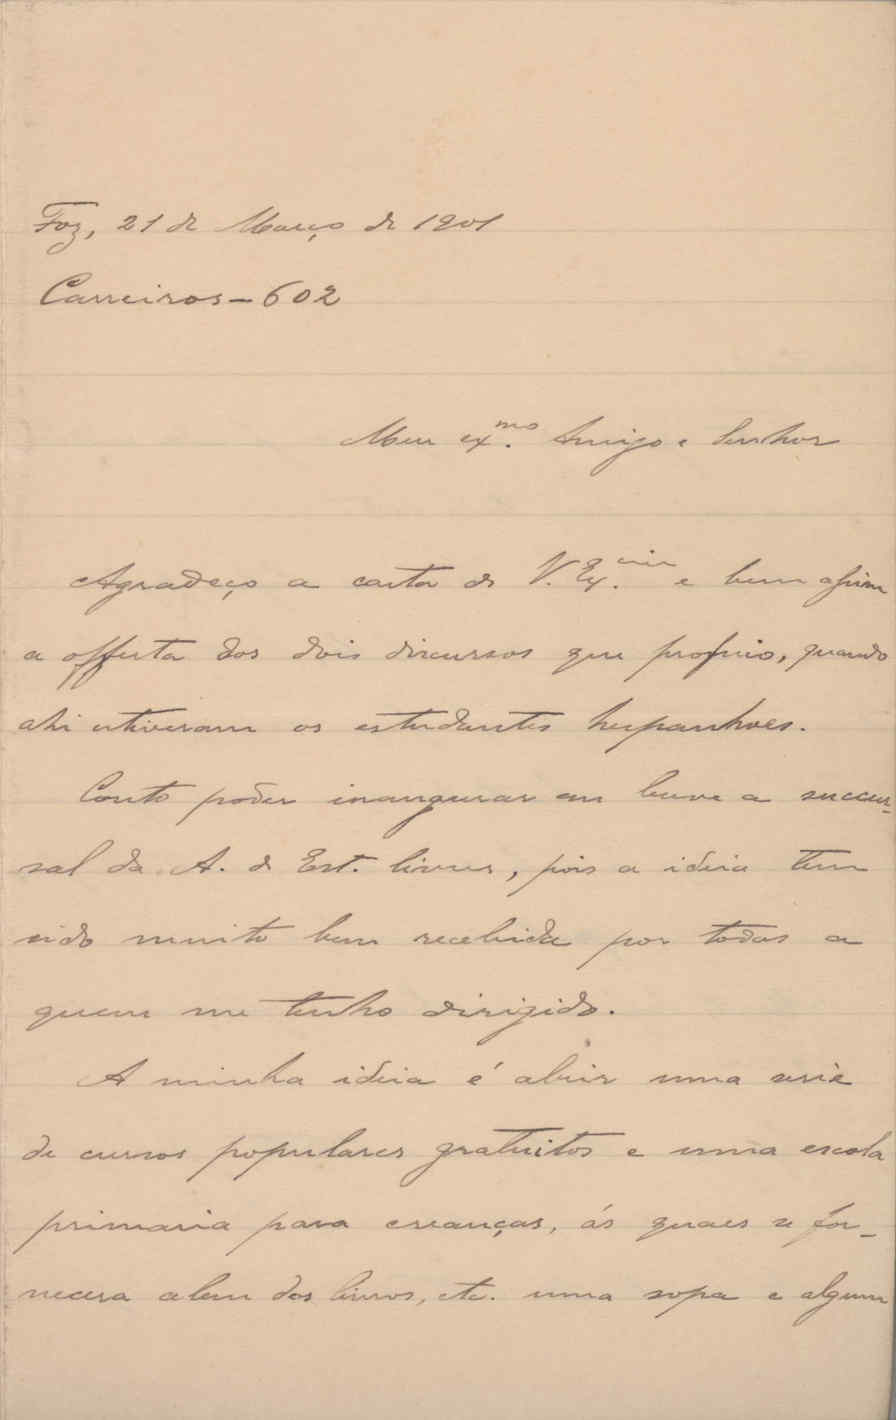 Foz, 21 de Março de 1901
Carreiros – 602
Meu ex.mo Amigo e Senhor
Agradeço a carta de V. Ex.cia e bem assim
a offerta dos dois discursos que proferio, quando
ahi estiveram os estudantes hespanhoes.
Conto poder inaugurar em breve a succur-
sal da A. de Est. livres, pois a ideia tem
sido muito bem recebida por todos a
quem me tenho dirigido.
A minha ideia é abrir uma serie
de cursos populares gratuitos e uma escola
primaria para creanças, ás quaes se for-
necera alem dos livros, etc. uma sopa e algum